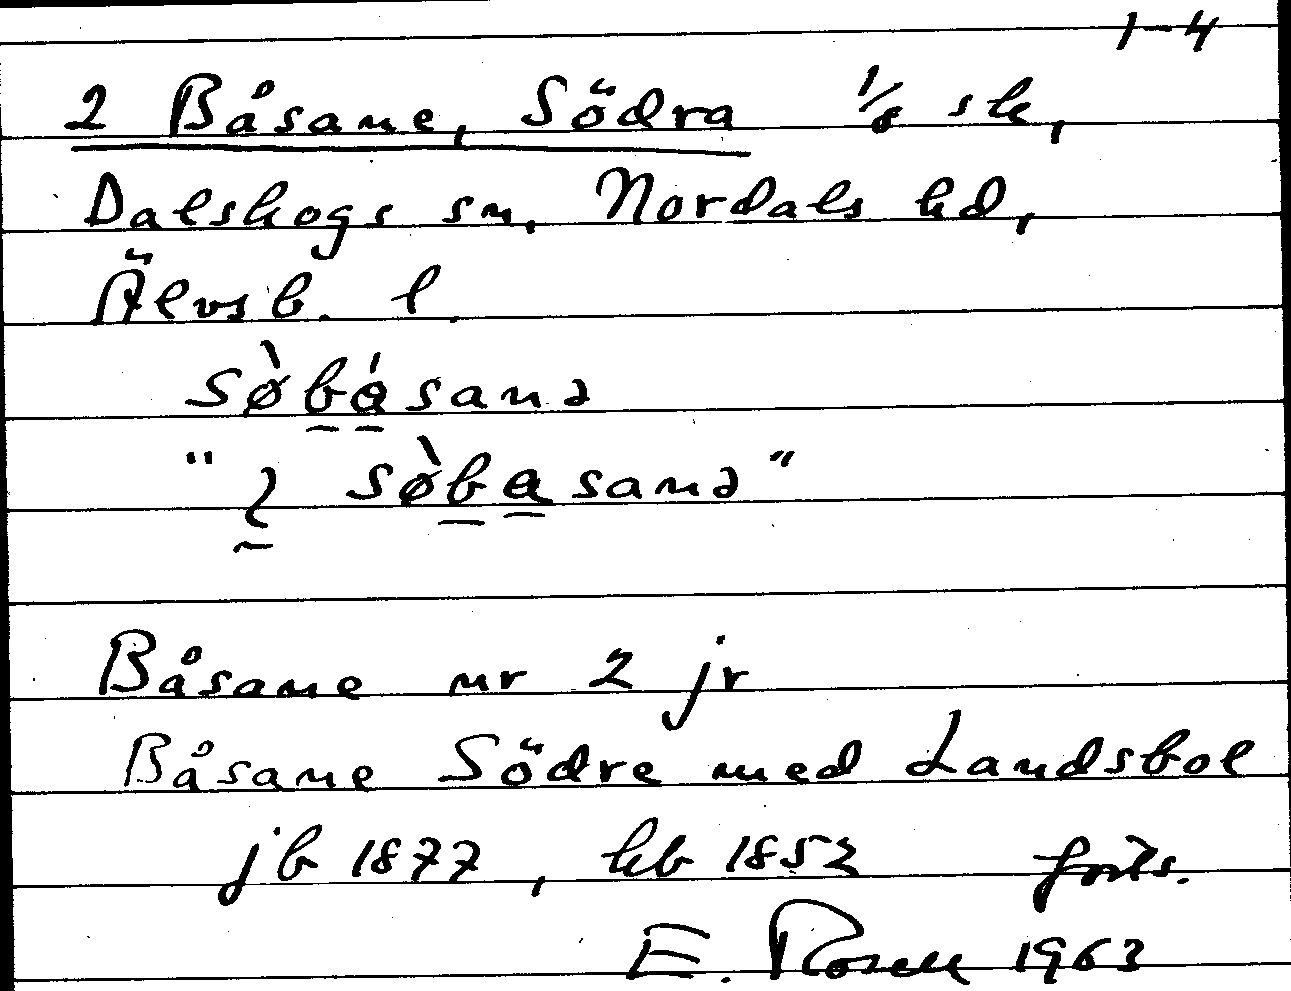 1-4
2 Båsane, Södra 1/8 sk,
Dalskogs sn, Nordals hd,
Älvsb. l.
sø̀básanə
"ɩ sø̀basanə"
Båsane nr 2 jr
Båsane Södre med Landsbol
jb 1877, kb 1852 forts.
E. Rosell 1963